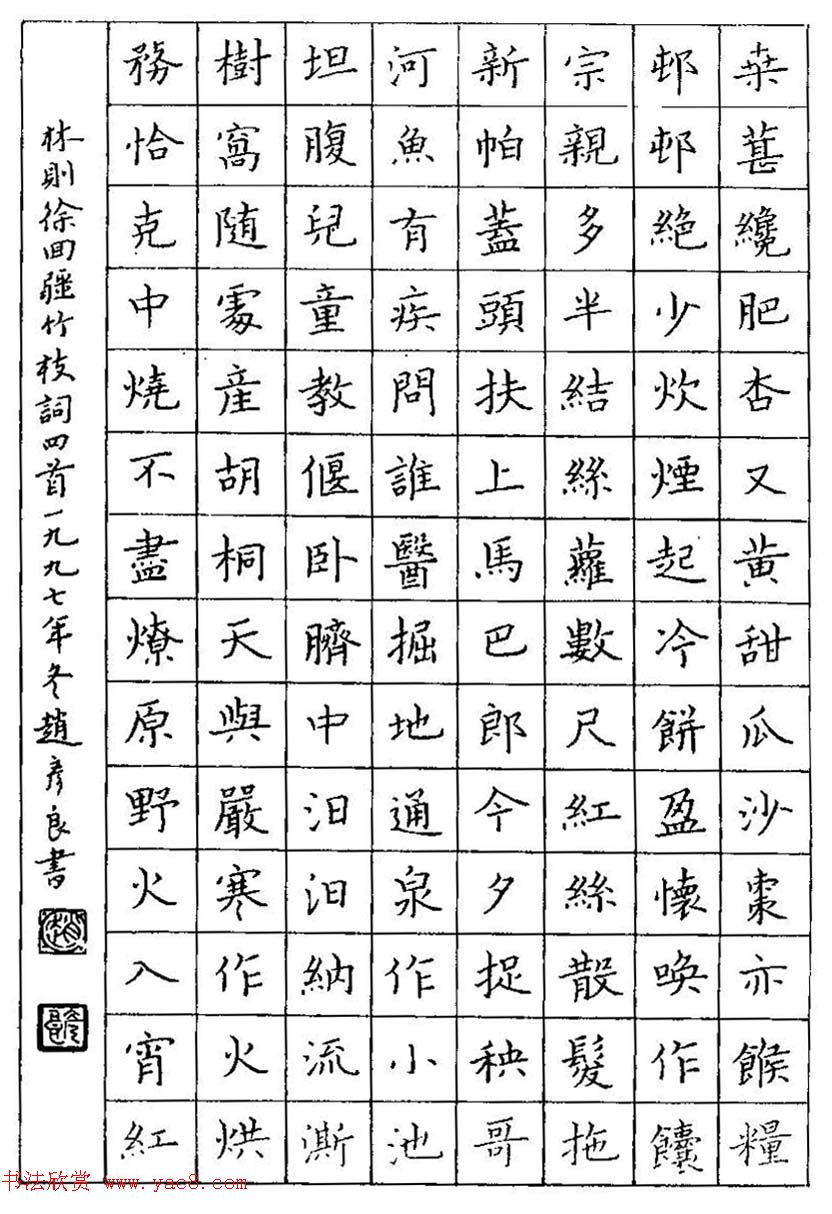 桒葚纔肥杏又黄甜瓜沙棗亦餱糧
邨邨絶少炊煙起冷餅盈懷唤作饢
宗親多半結絲蘿數尺紅絲散髮拖
新帕蓋頭扶上馬巴郎今夕捉秧哥
河魚有疾問誰醫掘地通泉作小池
坦腹兒童教偃卧臍中汩汩納流澌
樹窩随處産胡桐天與嚴寒作火烘
務恰克中燒不盡燎原野火入宵紅
林則徐回疆竹枝詞四首一九九七年冬趙彦良書
书法欣赏 www.yac8.com